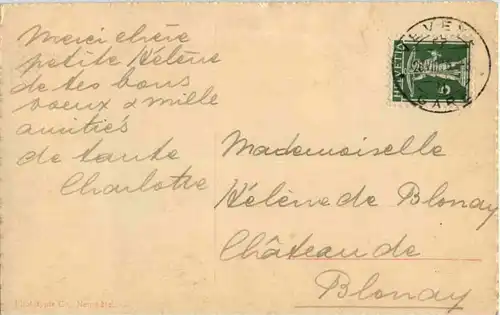 Merci chère
petite Hélène
de tes bons
voeux & mille
amitiés
de tante
Charlotte
VEVEY
GARE
HELVETIA
5
Mademoiselle
Hélène de Blonay
Château de
Blonay